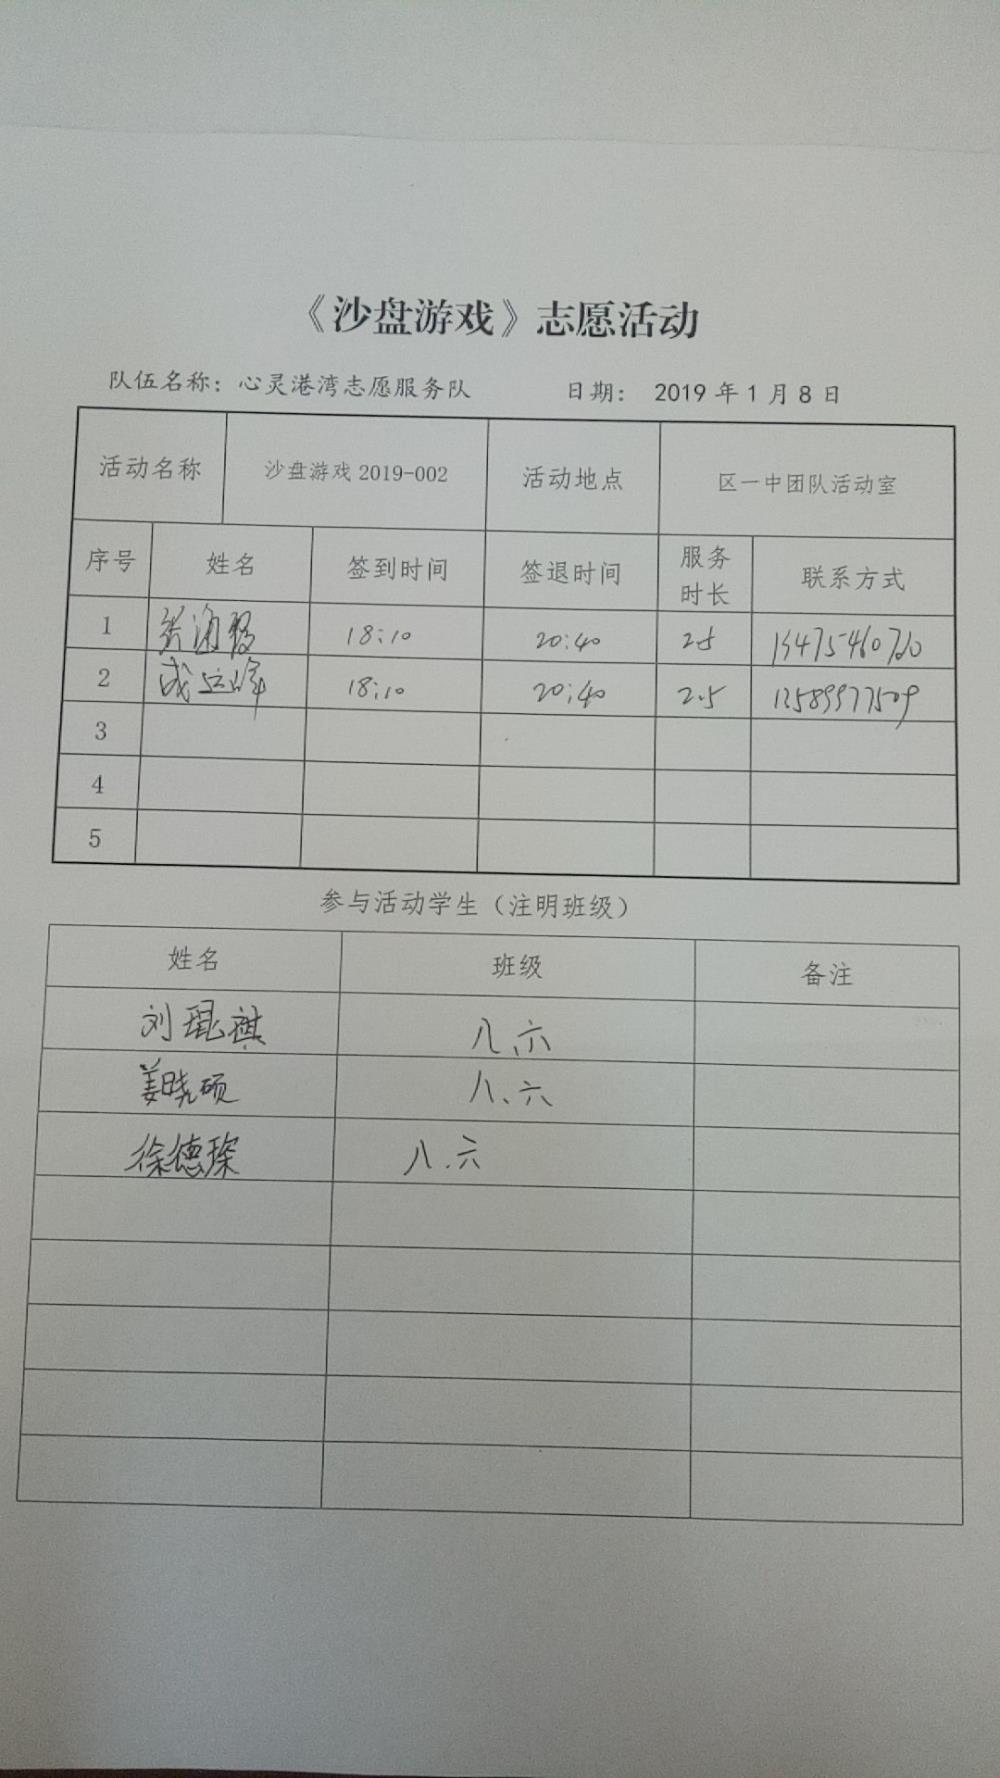 《沙盘游戏》志愿活动
队伍名称：心灵港湾志愿服务队 日期： 2019年1月8日
活动名称 沙盘游戏 2019-002 活动地点 区一中团队活动室
序号 姓名 签到时间 签退时间 服务时长 联系方式
1 18:10 20:40 2.5
2 18:10 20:40 2.5
3
4
5
参与活动学生（注明班级）
姓名 班级 备注
刘琨祺 八、六
姜晓硕 八、六
徐德琛 八.六